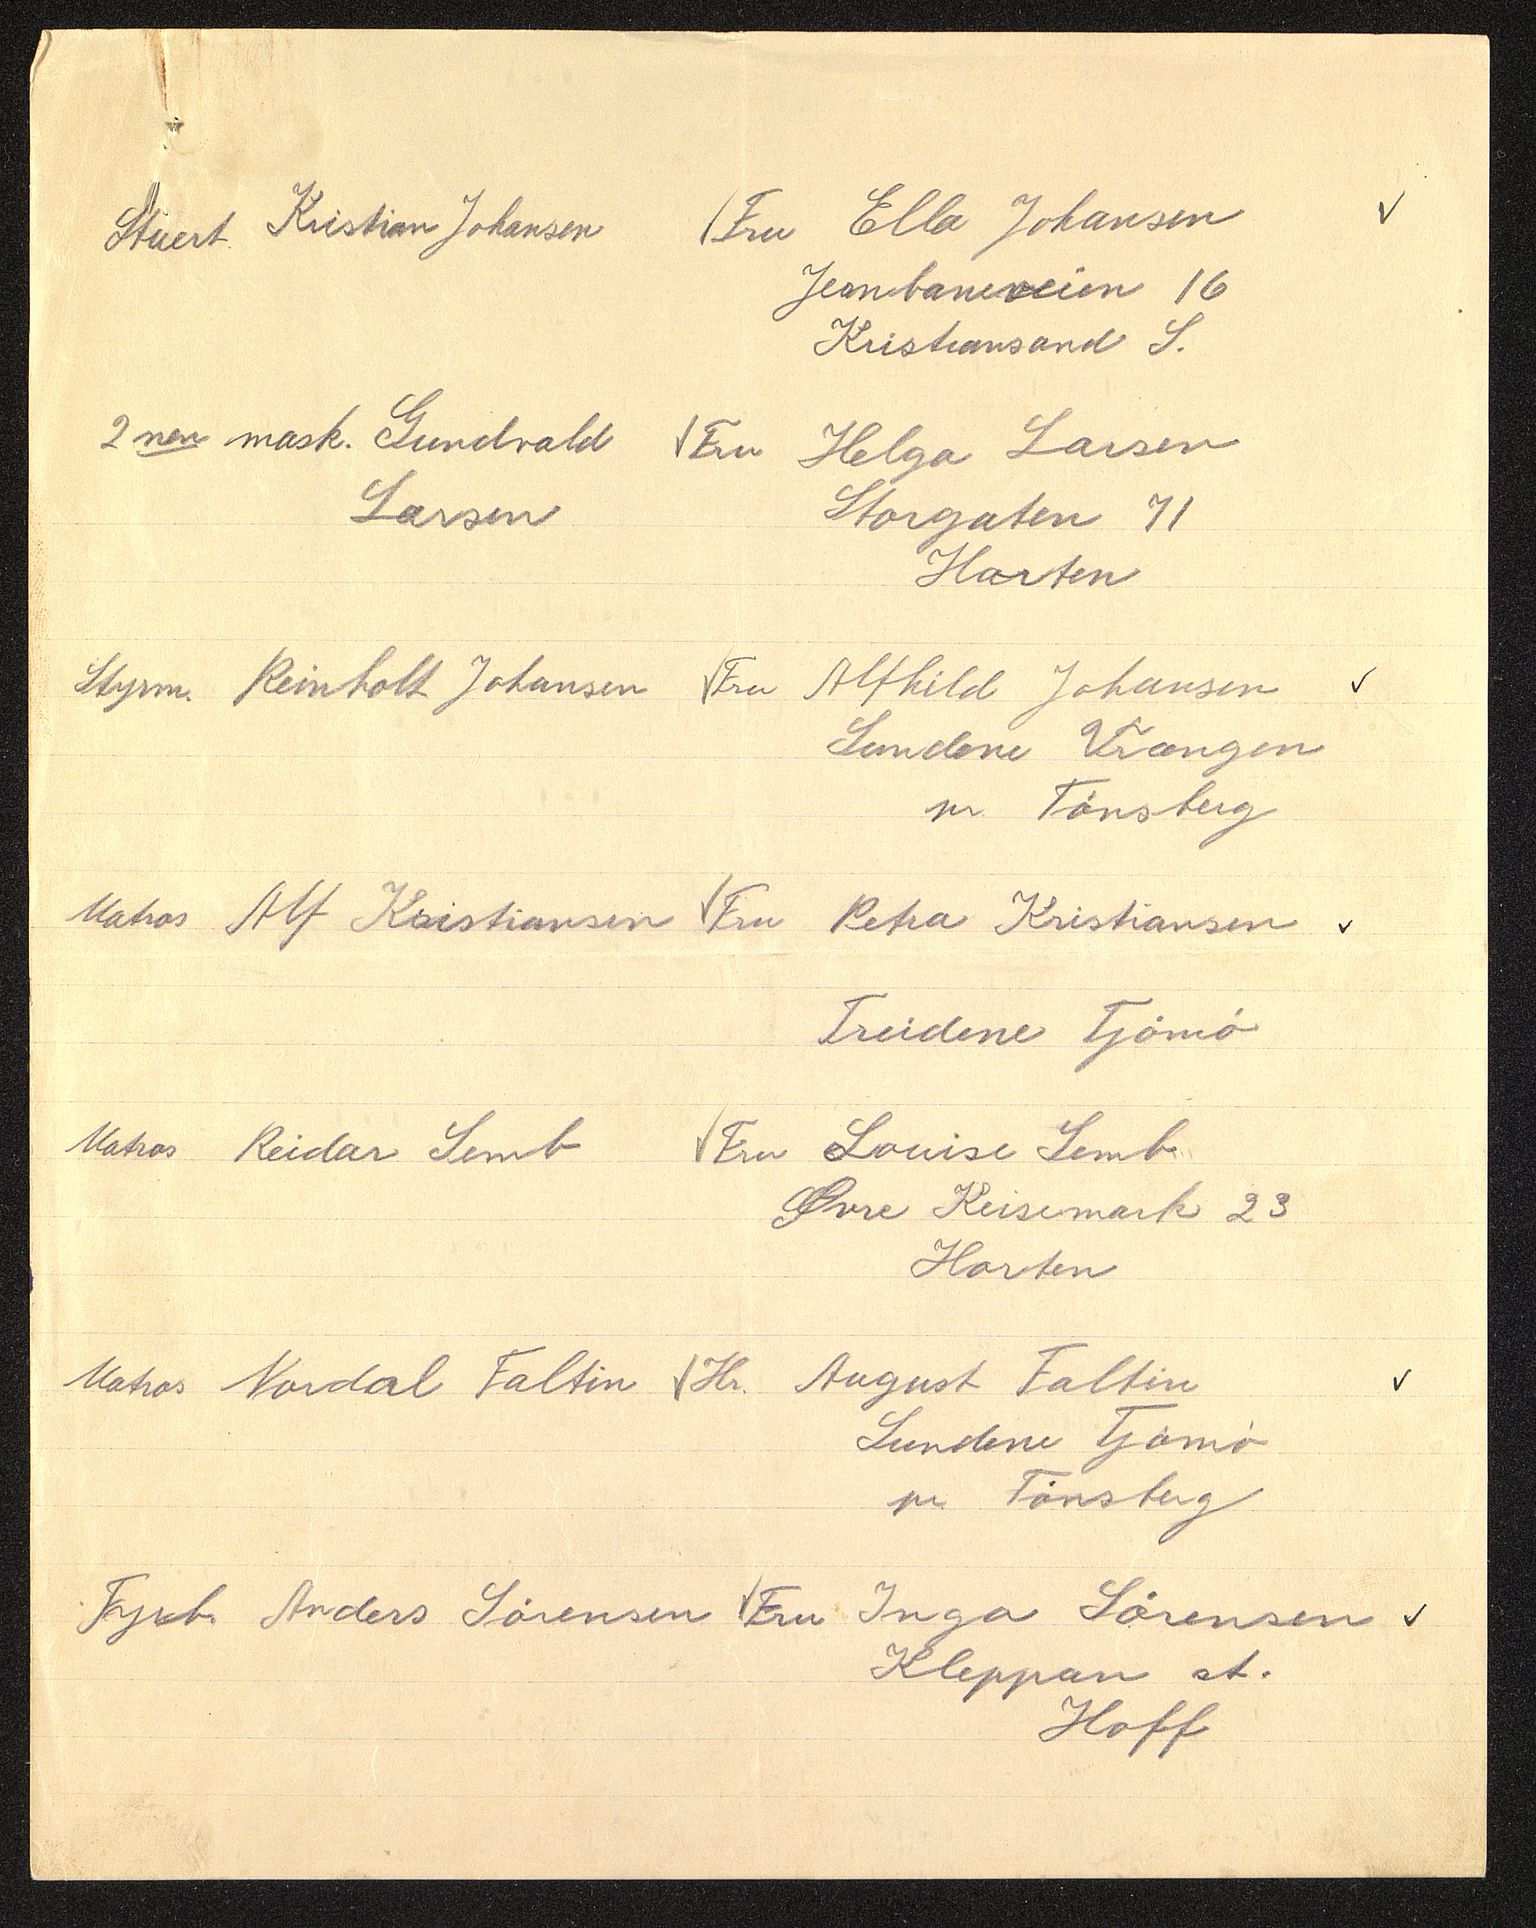 Stuert Kristian Johansen √ Fru Ella Johansen √
Jernbaneveien 16
Kristiansand S.
2nen mask. Gundvald √ Fru Helga Larsen
Larsen Storgaten 71
Horten
Styrm. Reinholt Johansen √ Fru Alfhild Johansen √
Sundene Vrængen
pr Tönsberg
Matros Alf Kristiansen √ Fru Petra Kristiansen √
Treidene Tjömö
Matros Reidar Semb √ Fru Louise Semb
Øvre Keisemark 23
Horten
Matros Nordal Faltin √ Hr. August Faltin √
Sundene Tjömö
pr. Tönsberg
Fyrb. Anders Sörensen √ Fru Inga Sörensen √
Kleppan st.
Hoff